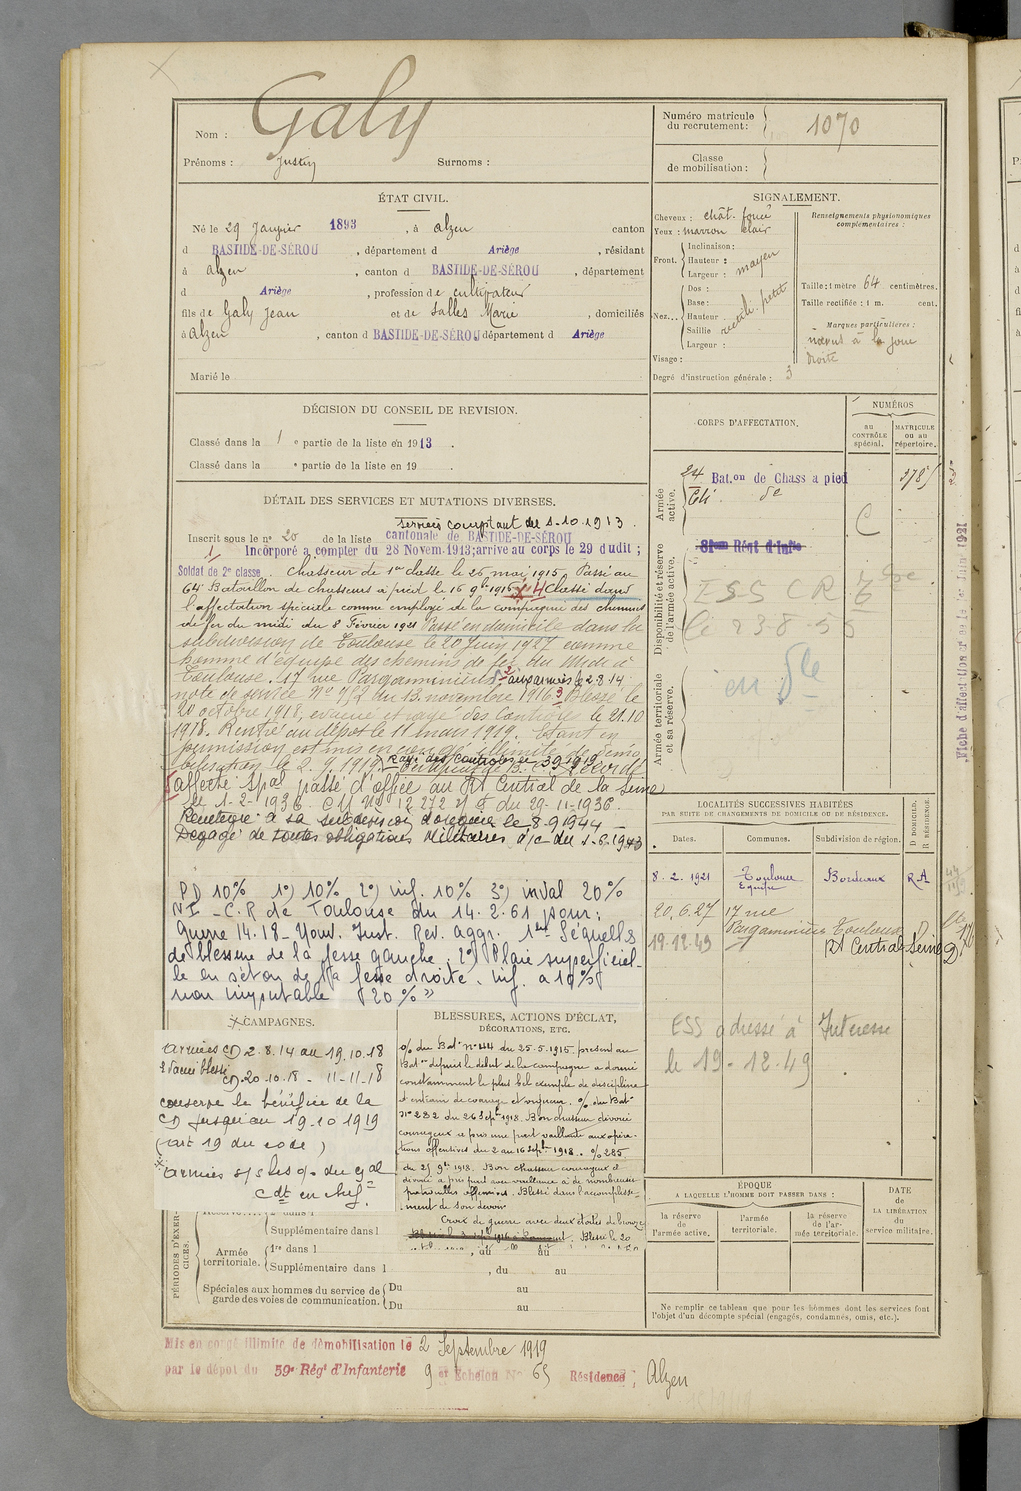 Nom : Galy
Prénoms : Justin Surnoms :
Numéro matricule du recrutement : 1070
Classe de mobilisation :
ÉTAT CIVIL.
Né le 29 Janvier 1893, à Alzen canton
d BASTIDE-DE-SÉROU, département d Ariège, résidant
à Alzen, canton d BASTIDE-DE-SÉROU, département
d Ariège, profession de cultivateur
fils de Galy Jean et de Salles Marie, domiciliés
à Alzen, canton d BASTIDE-DE-SÉROU département d Ariège
Marié le
SIGNALEMENT.
Cheveux : chât. foncé
Yeux : marron clair
Front. Inclinaison :
Hauteur : moyen
Largeur :
Nez... Dos :
Base :
Hauteur rectil. petit
Saillie
Largeur :
Visage :
Degré d'instruction générale : 3
Renseignements physionomiques complémentaires :
Taille : 1 mètre 64 centimètres.
Taille rectifiée : 1 m. cent.
Marques particulières :
nævus à la joue
droite
DÉCISION DU CONSEIL DE REVISION.
Classé dans la 1e partie de la liste en 1913.
Classé dans la e partie de la liste en 19 .
DÉTAIL DES SERVICES ET MUTATIONS DIVERSES.
services comptant du 1-10-1913.
Inscrit sous le n° 20 de la liste cantonale de BASTIDE-DE-SÉROU
1 Incorporé a compter du 28 Novem. 1913; arrive au corps le 29 dudit;
Soldat de 2e classe. Chasseur de 1re classe le 26 mai 1915. Passé au
64e Bataillon de chasseurs à pied le 16 9bre 1915 4 Classé dans
l'affectation spéciale comme employé de la compagnie des chemins
de fer du midi du 8 Février 1921 Passé en domicile dans la
subdivision de Toulouse le 20 Juin 1927 comme
homme d'équipe des chemins de fer du Midi à
Toulouse. 17 rue Pargaminières 2 aux armées le 2.8.14
note de service N° 752 du 13 novembre 1916 3 Blessé le
20 octobre 1918, évacué et rayé des contrôles le 21.10
1918. Rentré au dépôt le 11 mars 1919. Etant en
permission est mis en congé illimité de démo
bilisation le 2.9.1919. Rayé des contrôles le 3.9.1919
5 affecté spal passé d'office au Rt Central de la Seine
le 1-2-1936. CM N° 12272 du 29-11-1936.
Réintégré à sa subdivision d'origine le 8-9-1944
Dégagé de toutes obligations Militaires à/c du 1-6-1943
PD 10% 1°) 10% 2°) inf. 10% 3°) inval 20%
NI - C.R de Toulouse du 14.2.61 pour :
Guerre 14.18 - Nouv. Inst. Rev. aggr. 1er Séquelles
de blessure de la fesse gauche. 2°) Plaie superficiel-
le en séton de la fesse droite. inf. à 10%
non imputable 20% »
CORPS D'AFFECTATION.
NUMÉROS
au CONTRÔLE spécial.
MATRICULE ou au répertoire.
Armée active.
24 Bat.on de Chass a pied 3785
C
Disponibilité et réserve de l'armée active.
81eme Régt d'Infie
ESS CR 7
le 23-8-55
Armée territoriale et sa réserve.
Fiche d'affectation Juin 1921
LOCALITÉS SUCCESSIVES HABITÉES
PAR SUITE DE CHANGEMENTS DE DOMICILE OU DE RÉSIDENCE.
Dates. Communes. Subdivision de région. D. DOMICILE. R. RÉSIDENCE.
8.2.1921 Toulouse Bordeaux R A
20.6.27 17 rue
Pargaminières Toulouse
19.12.49 Rt Central Seine D
ESS adressé à Intéressé
le 19-12-49
CAMPAGNES.
armées CD 2.8.14 au 19.10.18
évacué blessé
CD 20-10-18 - 11-11-18
conserve le bénéfice de la
CD jusqu'au 19-10 1919
(art 19 du code)
armées s/s les o/ du gal
Cdt en chef
BLESSURES, ACTIONS D'ÉCLAT,
DÉCORATIONS, ETC.
o/ du Bat. N° 44 du 25.5.1915. présent au
Bat. depuis le début de la campagne a donné
constamment le plus bel exemple de discipline
et entrain de courage et vigueur. o/ du Bat.
N° 282 du 26 Sept. 1918. Bon chasseur dévoué
courageux a pris une part vaillante aux opéra-
tions offensives du 2 au 16 Sept. 1918. o/ 285
du 25 9bre 1918. Bon chasseur courageux et
dévoué a pris part avec vaillance à de nombreuses
patrouilles offensives. Blessé dans l'accomplisse-
ment de son devoir
Croix de guerre avec deux étoiles de bronze
Blessé le 20
PÉRIODES D'EXERCICES.
Supplémentaire dans l
Armée territoriale. 1re dans l
Supplémentaire dans l , du au
Spéciales aux hommes du service de garde des voies de communication. Du au
Du au
ÉPOQUE
A LAQUELLE L'HOMME DOIT PASSER DANS :
la réserve de l'armée active.
l'armée territoriale.
la réserve de l'armée territoriale.
DATE de LA LIBÉRATION du service militaire.
Ne remplir ce tableau que pour les hommes dont les services font
l'objet d'un décompte spécial (engagés, condamnés, omis, etc.).
Mis en congé illimité de démobilisation le 2 Septembre 1919
par le dépôt du 59e Régt d'Infanterie 9 et Echelon N° 65 Résidence ; Alzen